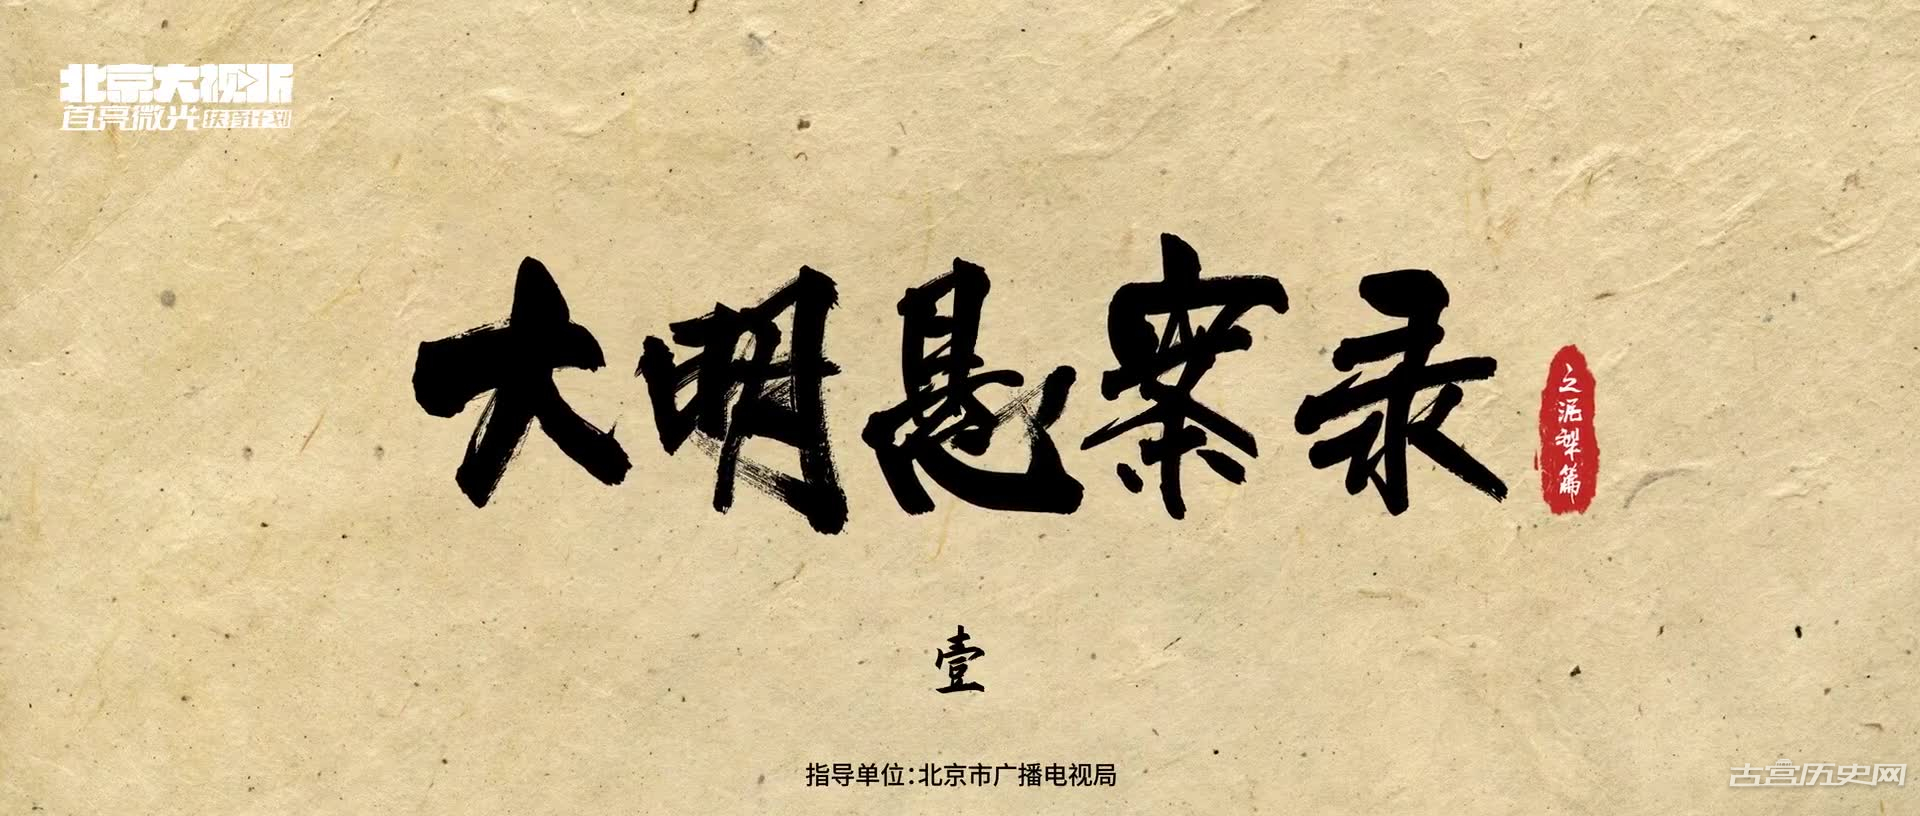 北京大视听
首亮微光 扶持计划
大明悬案录
之泥犁篇
壹
指导单位:北京市广播电视局
古宫历史网